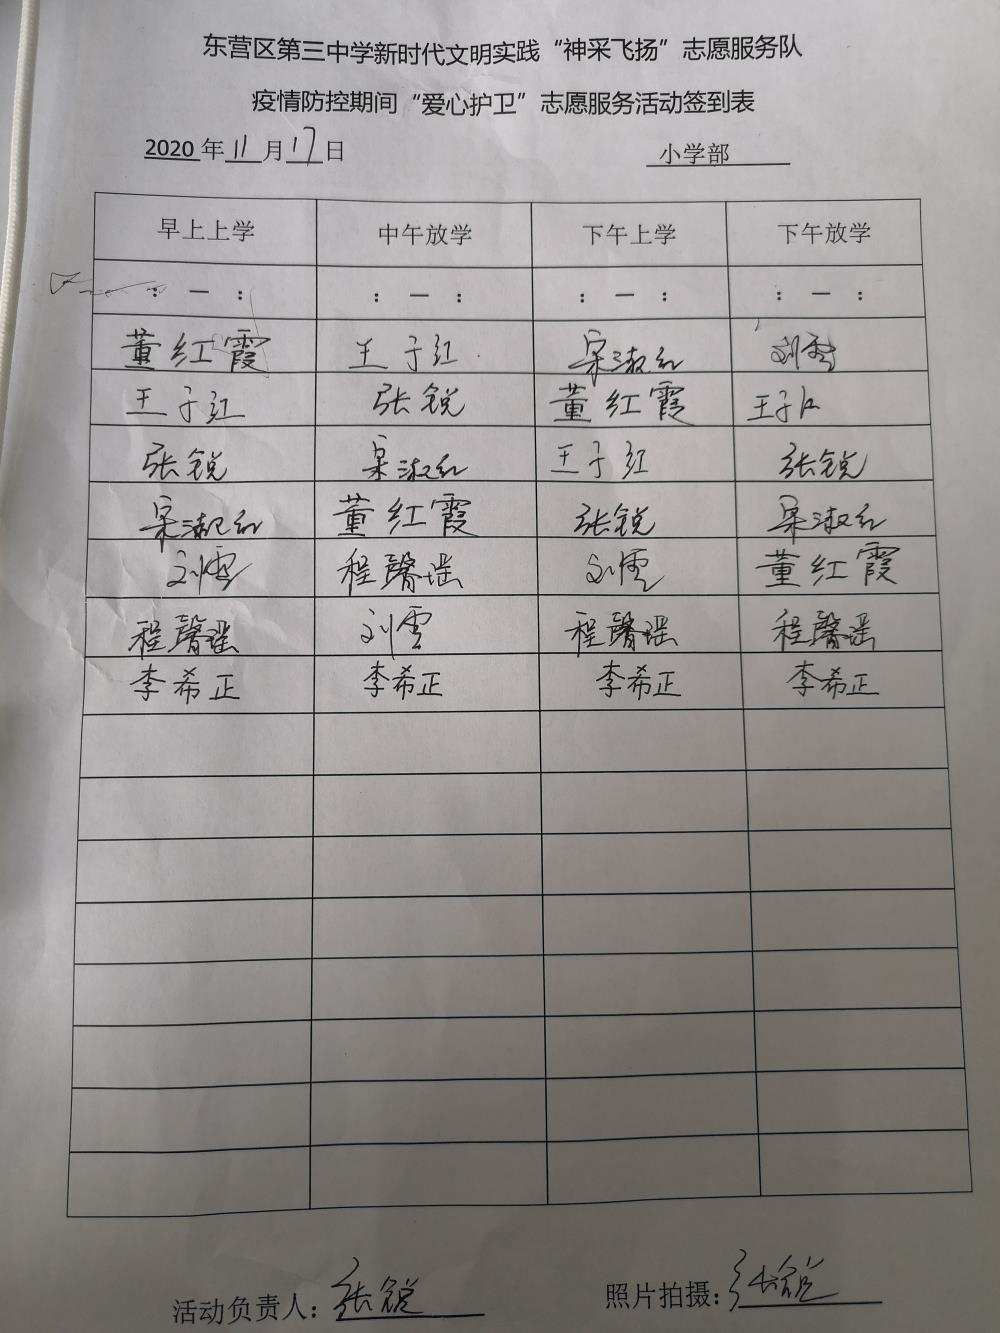 东营区第三中学新时代文明实践“神采飞扬”志愿服务队
疫情防控期间“爱心护卫”志愿服务活动签到表
2020年11月17日 小学部
早上上学 中午放学 下午上学 下午放学
: — : : — : : — : : — :
董红霞 王子红 宋淑红 刘雪
王子红 张锐 董红霞 王子红
张锐 宋淑红 王子红 张锐
宋淑红 董红霞 张锐 宋淑红
刘雪 程馨瑶 刘雪 董红霞
程馨瑶 刘雪 程馨瑶 程馨瑶
李希正 李希正 李希正 李希正
活动负责人：张锐 照片拍摄：张锐